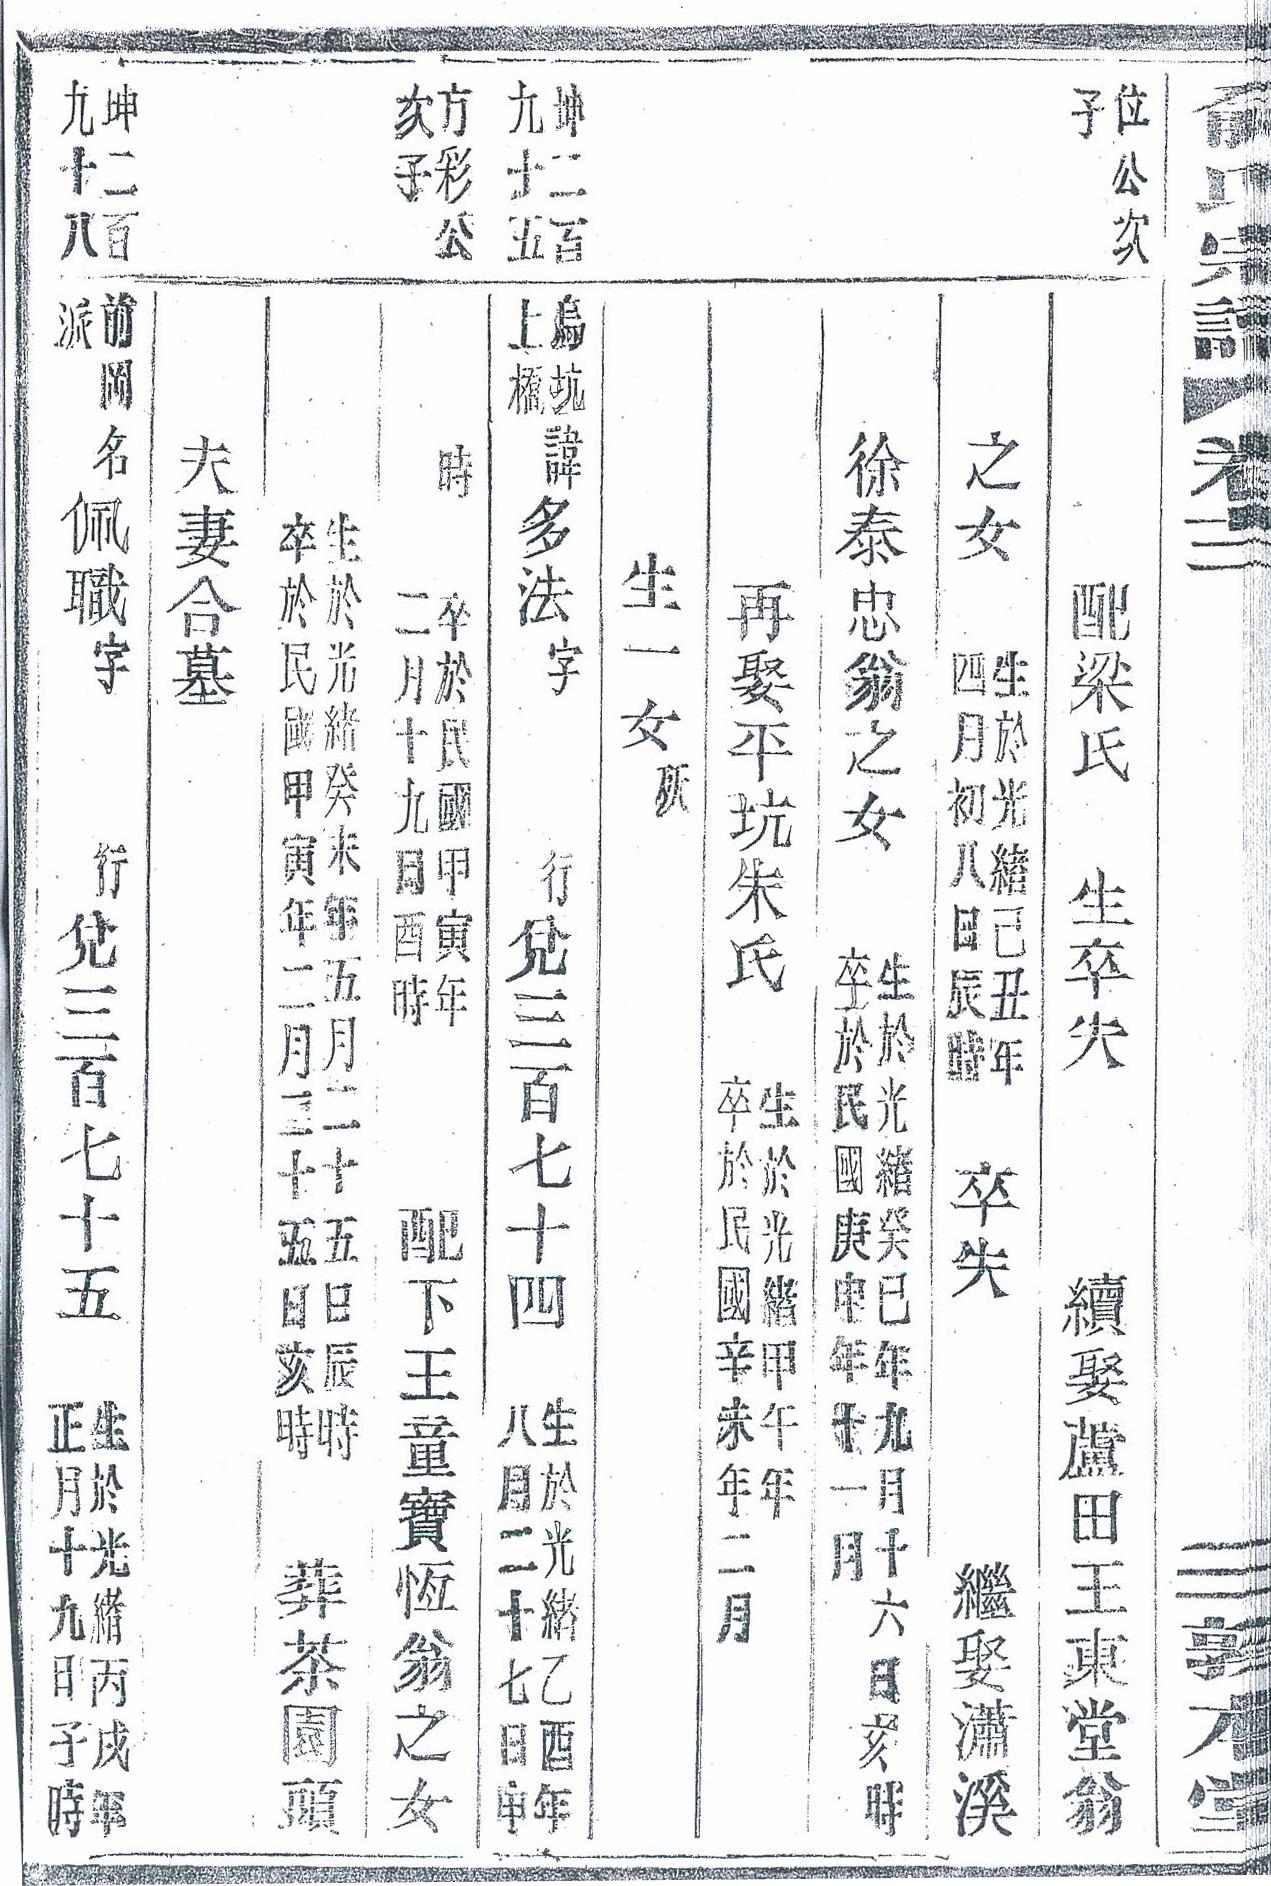 俞氏宗譜 卷二 三 敦本堂
位公次
子
配梁氏 生卒失 續娶蘆田王東堂翁
之女 生於光緒己丑年
四月初八日辰時 卒失 繼娶瀟溪
徐泰忠翁之女 生於光緒癸巳年九月十六日亥時
卒於民國庚申年十一月
再娶平坑朱氏 生於光緒甲午年
卒於民國辛未年二月
生一女
坤二百
九十五
烏坑
上橋 諱多法字 行兌三百七十四 生於光緒乙酉年
八月二十七日申
方彩公
次子
時 卒於民國甲寅年
二月十九日酉時 配下王童寶恆翁之女
生於光緒癸未年五月二十五日辰時
卒於民國甲寅年二月三十五日亥時 葬茶園頭
夫妻合墓
坤二百
九十八
前岡
派 名佩職字 行兌三百七十五 生於光緒丙戌年
正月十九日子時